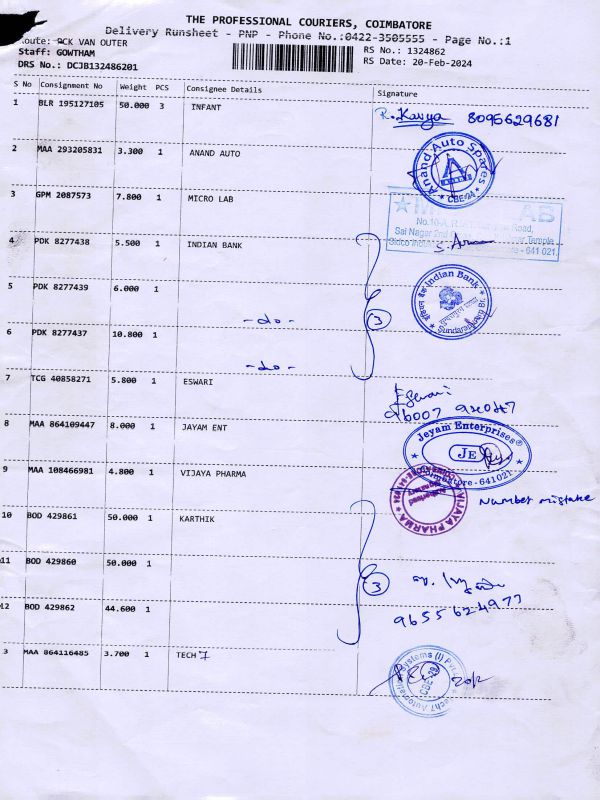 THE PROFESSIONAL COURIERS, COIMBATORE
Delivery Runsheet - PNP - Phone No.:0422-3505555 - Page No.:1
Route: PCK VAN OUTER
Staff: GOWTHAM
DRS No.: DCJB132486201
RS No.: 1324862
RS Date: 20-Feb-2024
S No Consignment No Weight PCS Consignee Details Signature
1 BLR 195127105 50.000 3 INFANT R. Kavya 8095629681
2 MAA 293205831 3.300 1 ANAND AUTO
Anand Auto Spares
CBE-24
3 GPM 2087573 7.800 1 MICRO LAB
AB
Road,
Sai Nagar 2nd Temple
Sidco - 641 021.
4 PDK 8277438 5.500 1 INDIAN BANK
5 PDK 8277439 6.000 1 -do-
3
Indian Bank
6 PDK 8277437 10.800 1 -do-
7 TCG 40858271 5.800 1 ESWARI
8 MAA 864109447 8.000 1 JAYAM ENT
Jeyam Enterprises
JE
Coimbatore - 641021
9 MAA 108466981 4.800 1 VIJAYA PHARMA
VIJAYA PHARMA
Number mistake
10 BOD 429861 50.000 1 KARTHIK
11 BOD 429860 50.000 1
3
12 BOD 429862 44.600 1
9655624977
3 MAA 864116485 3.700 1 TECH 7
20/2